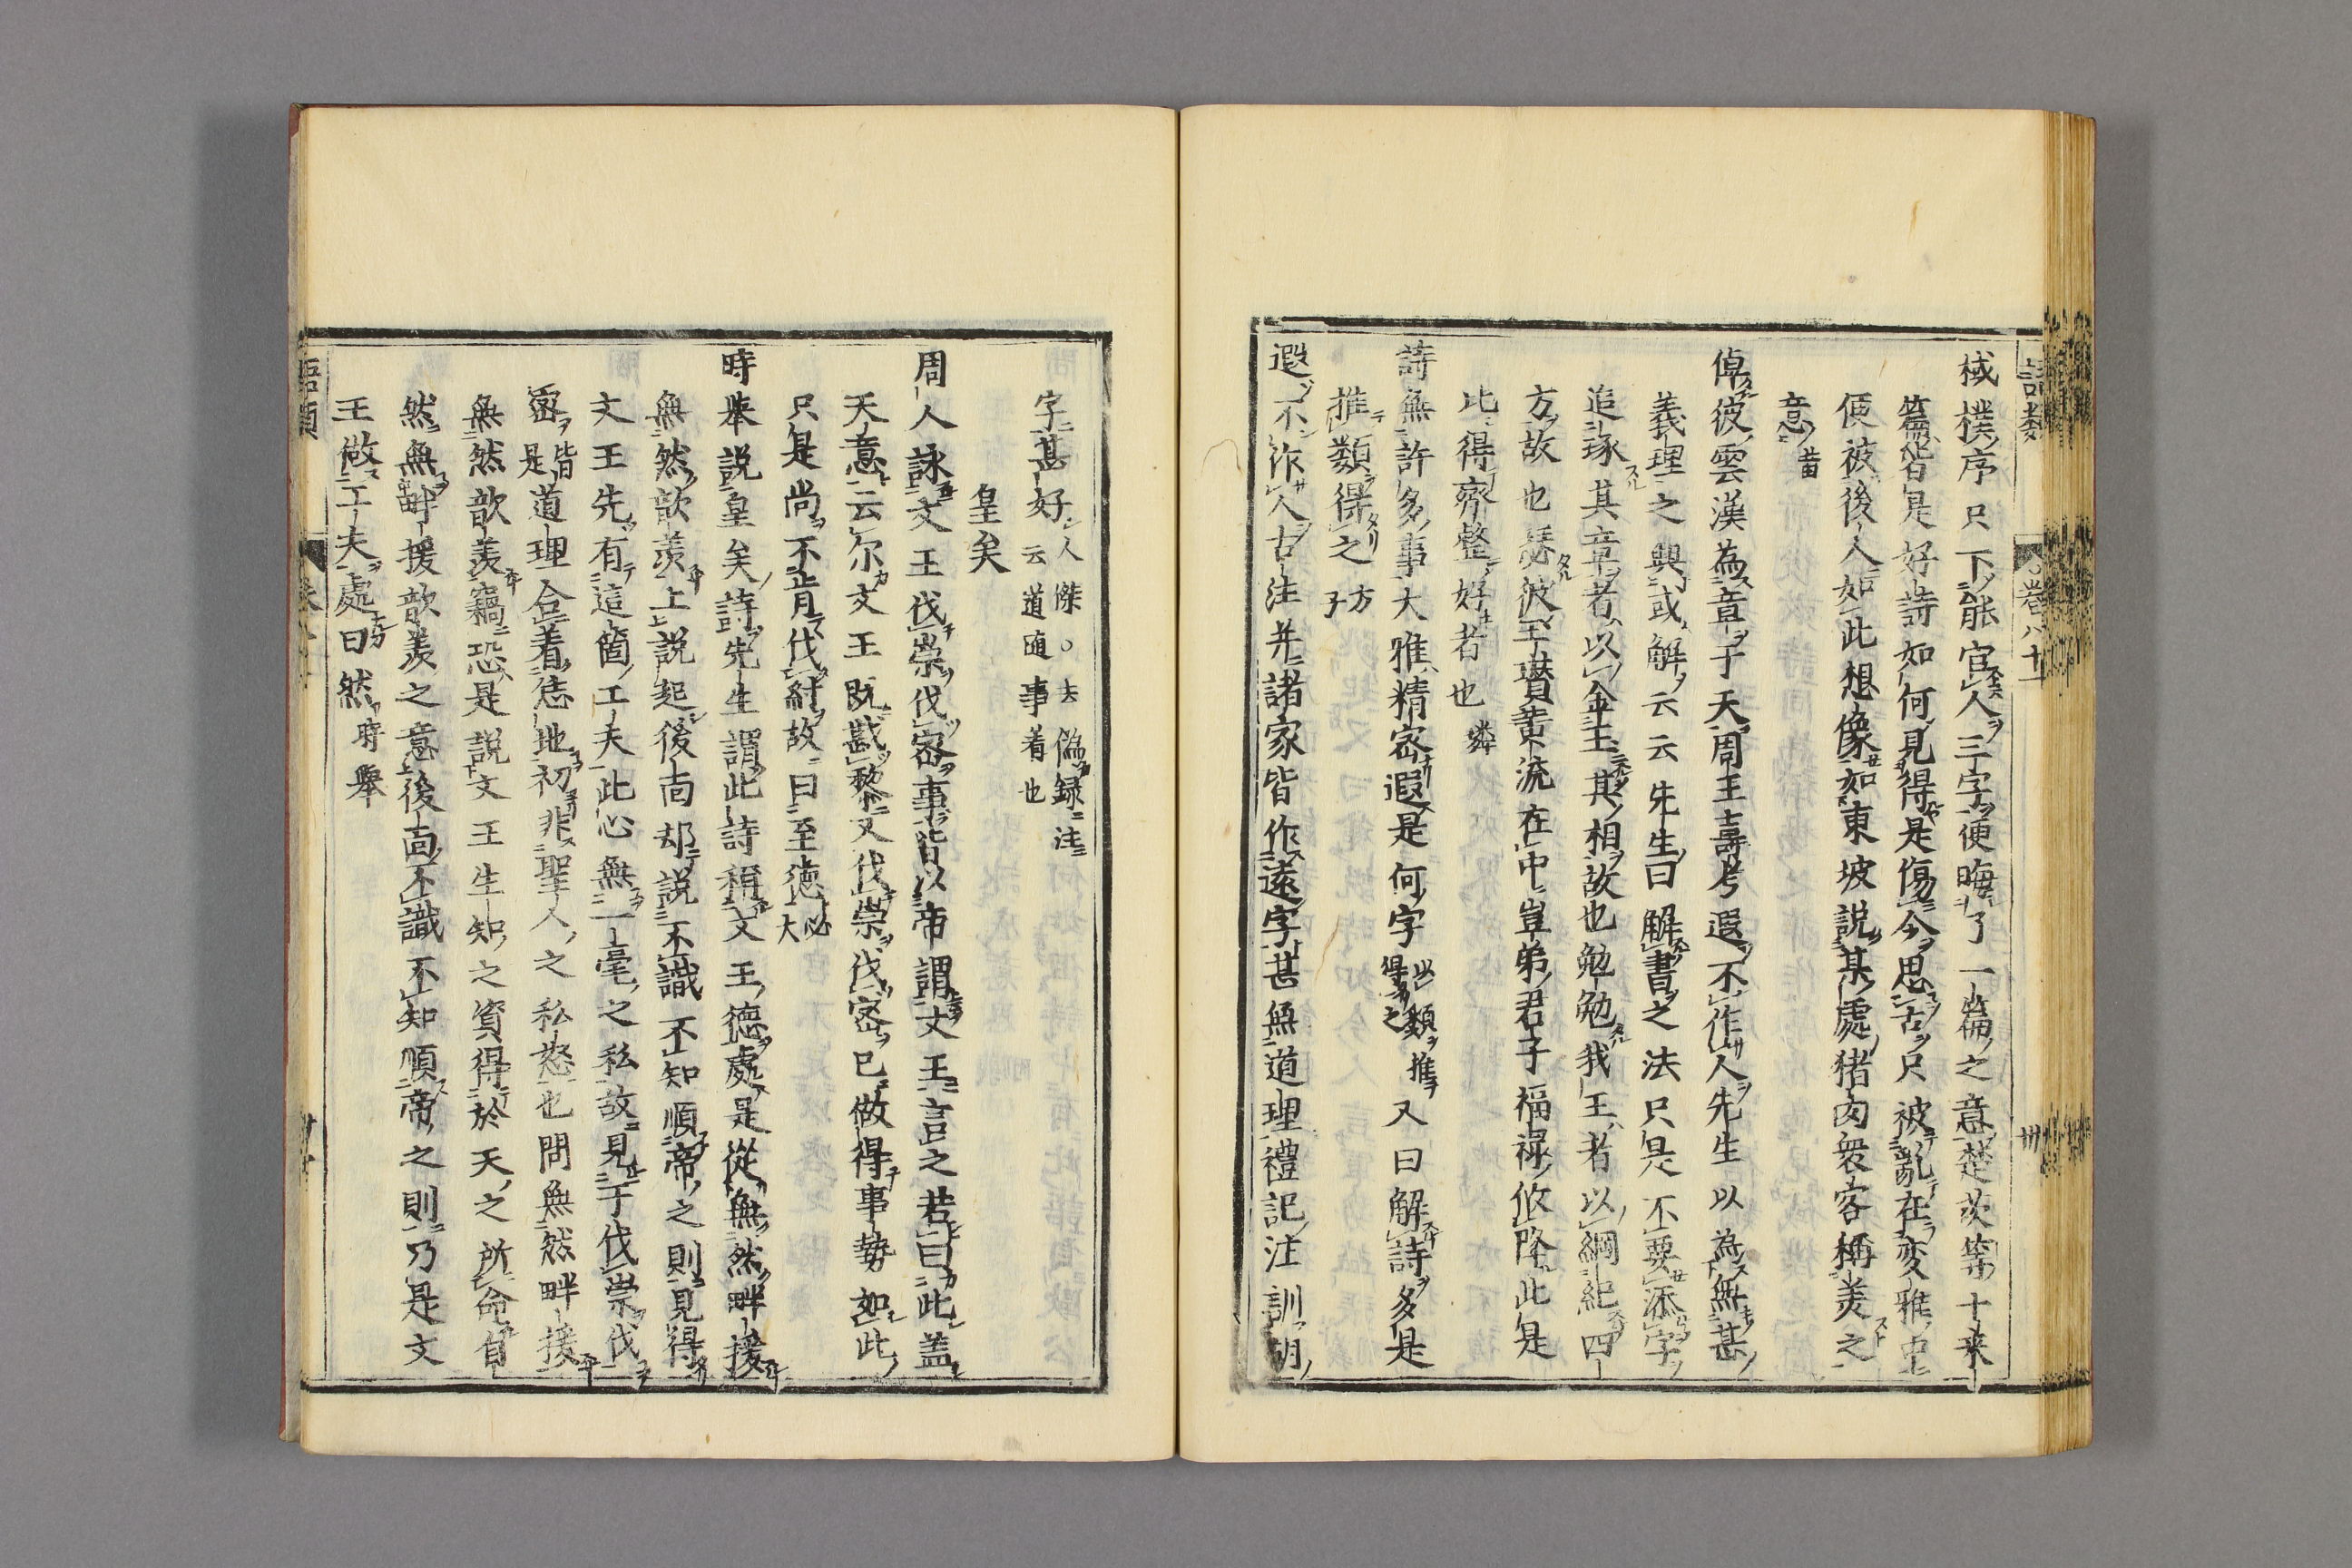 語類　卷八十一　卅
棫樸序只下能官人三字便晦了一篇之意楚茨等十来
篇皆是好詩如何見得是傷今思古只被亂在変雅中
便被後人如此想像如東坡説某處猪肉衆客稱羙之
意 㽕
倬彼雲漢為章于天周王壽考遐不作人先生以為無甚
義理之興或解云云先生曰解書之法只是不要添字
追琢其章者以金玉其相故也勉勉我王者以綱紀四
方故也瑟彼玉瓉黄流在中豈弟君子福禄攸降此是
比得齊整好者也 㷠
詩無許多事大雅精宻遐是何字 以類推得之 又曰解詩多是
推類得之 方子
遐不作人古注并諸家皆作遠字甚無道理禮記注訓胡
字甚好 人傑。去偽録注云道随事着也
皇矣
周人詠文王伐崇伐宻事皆以帝謂文王言之若曰此盖
天意云尔文王既戡黎又伐崇伐宻已做得事勢如此
只是尚不肯伐紂故曰至徳 必大
時㪯説皇矣詩先生謂此詩稱文王徳處是從無然畔援
無然歆羡上説起後靣却説不識不知順帝之則見得
文王先有這箇工夫此心無一毫之私故見于伐崇伐
宻皆是道理合着恁地初非聖人之私怒也問無然畔援
無然歆羡竊恐是説文王生知之資得於天之所命自
然無畔援歆羡之意後靣不識不知順帝之則乃是文
王做工夫處曰然 時舉
語類